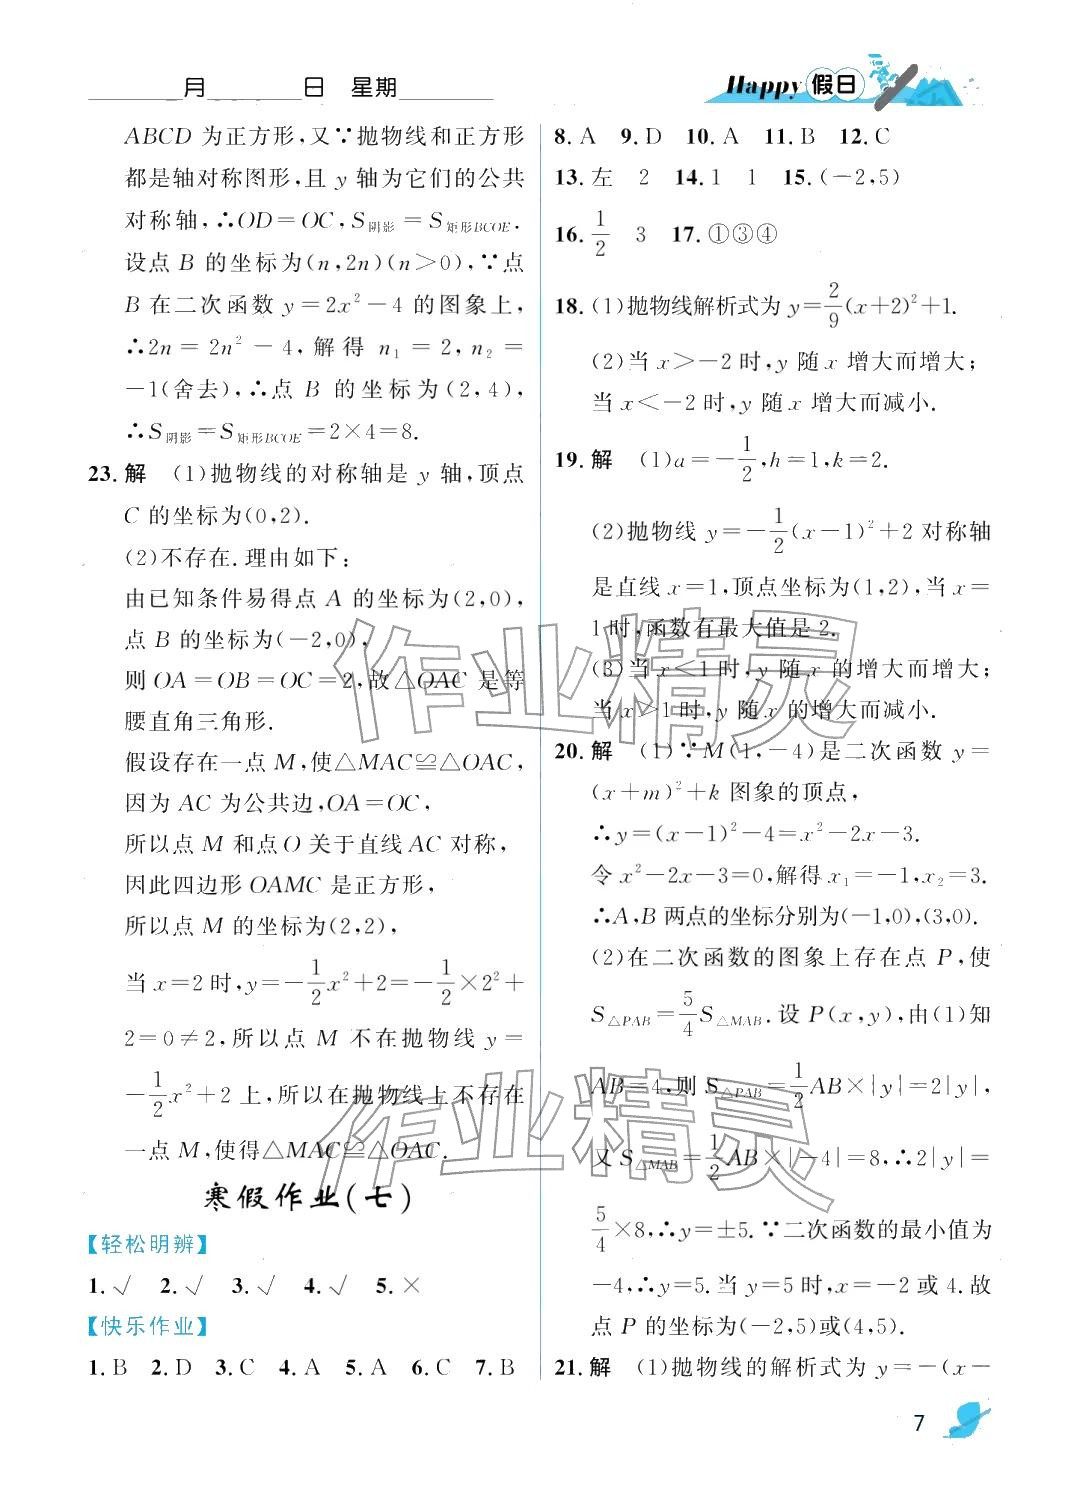 月 日 星期
Happy 假日
ABCD 为正方形,又∵抛物线和正方形
都是轴对称图形,且 y 轴为它们的公共
对称轴,∴OD=OC,S阴影=S矩形BCOE.
设点 B 的坐标为(n,2n)(n>0),∵点
B 在二次函数 y=2x²-4 的图象上,
∴2n=2n²-4,解得 n₁=2,n₂=
-1(舍去),∴点 B 的坐标为(2,4),
∴S阴影=S矩形BCOE=2×4=8.
23.解 (1)抛物线的对称轴是 y 轴,顶点
C 的坐标为(0,2).
(2)不存在.理由如下:
由已知条件易得点 A 的坐标为(2,0),
点 B 的坐标为(-2,0),
则 OA=OB=OC=2,故△OAC 是等
腰直角三角形.
假设存在一点 M,使△MAC≌△OAC,
因为 AC 为公共边,OA=OC,
所以点 M 和点 O 关于直线 AC 对称,
因此四边形 OAMC 是正方形,
所以点 M 的坐标为(2,2),
当 x=2 时,y=-1/2x²+2=-1/2×2²+
2=0≠2,所以点 M 不在抛物线 y=
-1/2x²+2 上,所以在抛物线上不存在
一点 M,使得△MAC≌△OAC.
寒假作业(七)
【轻松明辨】
1.√ 2.√ 3.√ 4.√ 5.×
【快乐作业】
1.B 2.D 3.C 4.A 5.A 6.C 7.B
8.A 9.D 10.A 11.B 12.C
13.左 2 14.1 1 15.(-2,5)
16.1/2 3 17.①③④
18.(1)抛物线解析式为 y=2/9(x+2)²+1.
(2)当 x>-2 时,y 随 x 增大而增大;
当 x<-2 时,y 随 x 增大而减小.
19.解 (1)a=-1/2,h=1,k=2.
(2)抛物线 y=-1/2(x-1)²+2 对称轴
是直线 x=1,顶点坐标为(1,2),当 x=
1 时,函数有最大值是 2.
(3)当 x<1 时,y 随 x 的增大而增大;
当 x>1 时,y 随 x 的增大而减小.
20.解 (1)∵M(1,-4)是二次函数 y=
(x+m)²+k 图象的顶点,
∴y=(x-1)²-4=x²-2x-3.
令 x²-2x-3=0,解得 x₁=-1,x₂=3.
∴A,B 两点的坐标分别为(-1,0),(3,0).
(2)在二次函数的图象上存在点 P,使
S△PAB=5/4S△MAB.设 P(x,y),由(1)知
AB=4,则 S△PAB=1/2AB×|y|=2|y|,
又 S△MAB=1/2AB×|-4|=8,∴2|y|=
5/4×8,∴y=±5.∵二次函数的最小值为
-4,∴y=5.当 y=5 时,x=-2 或 4.故
点 P 的坐标为(-2,5)或(4,5).
21.解 (1)抛物线的解析式为 y=-(x-
7
作业精灵
作业精灵